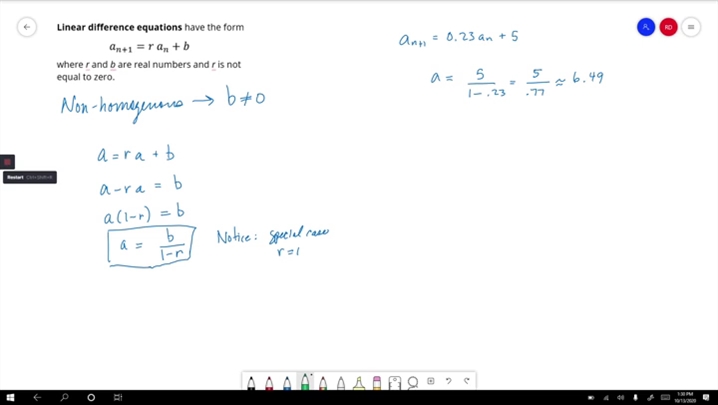 Linear difference equations have the form
aₙ₊₁ = r aₙ + b
where r and b are real numbers and r is not
equal to zero.
Non-homogenous → b ≠ 0
a = ra + b
a - ra = b
a(1-r) = b
a = b/(1-r)
Notice: special case
r = 1
aₙ₊₁ = 0.23aₙ + 5
a = 5/(1-.23) = 5/.77 ≈ 6.49
RD
Restart
1:30 PM
10/13/2020